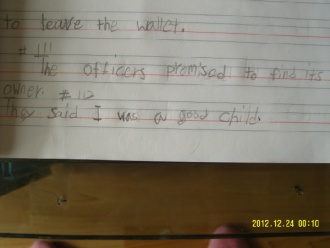 to leave the wallet.
# 111
The officers promised to find its
owner. # 112
They said I was a good child.
2012.12.24 00:10